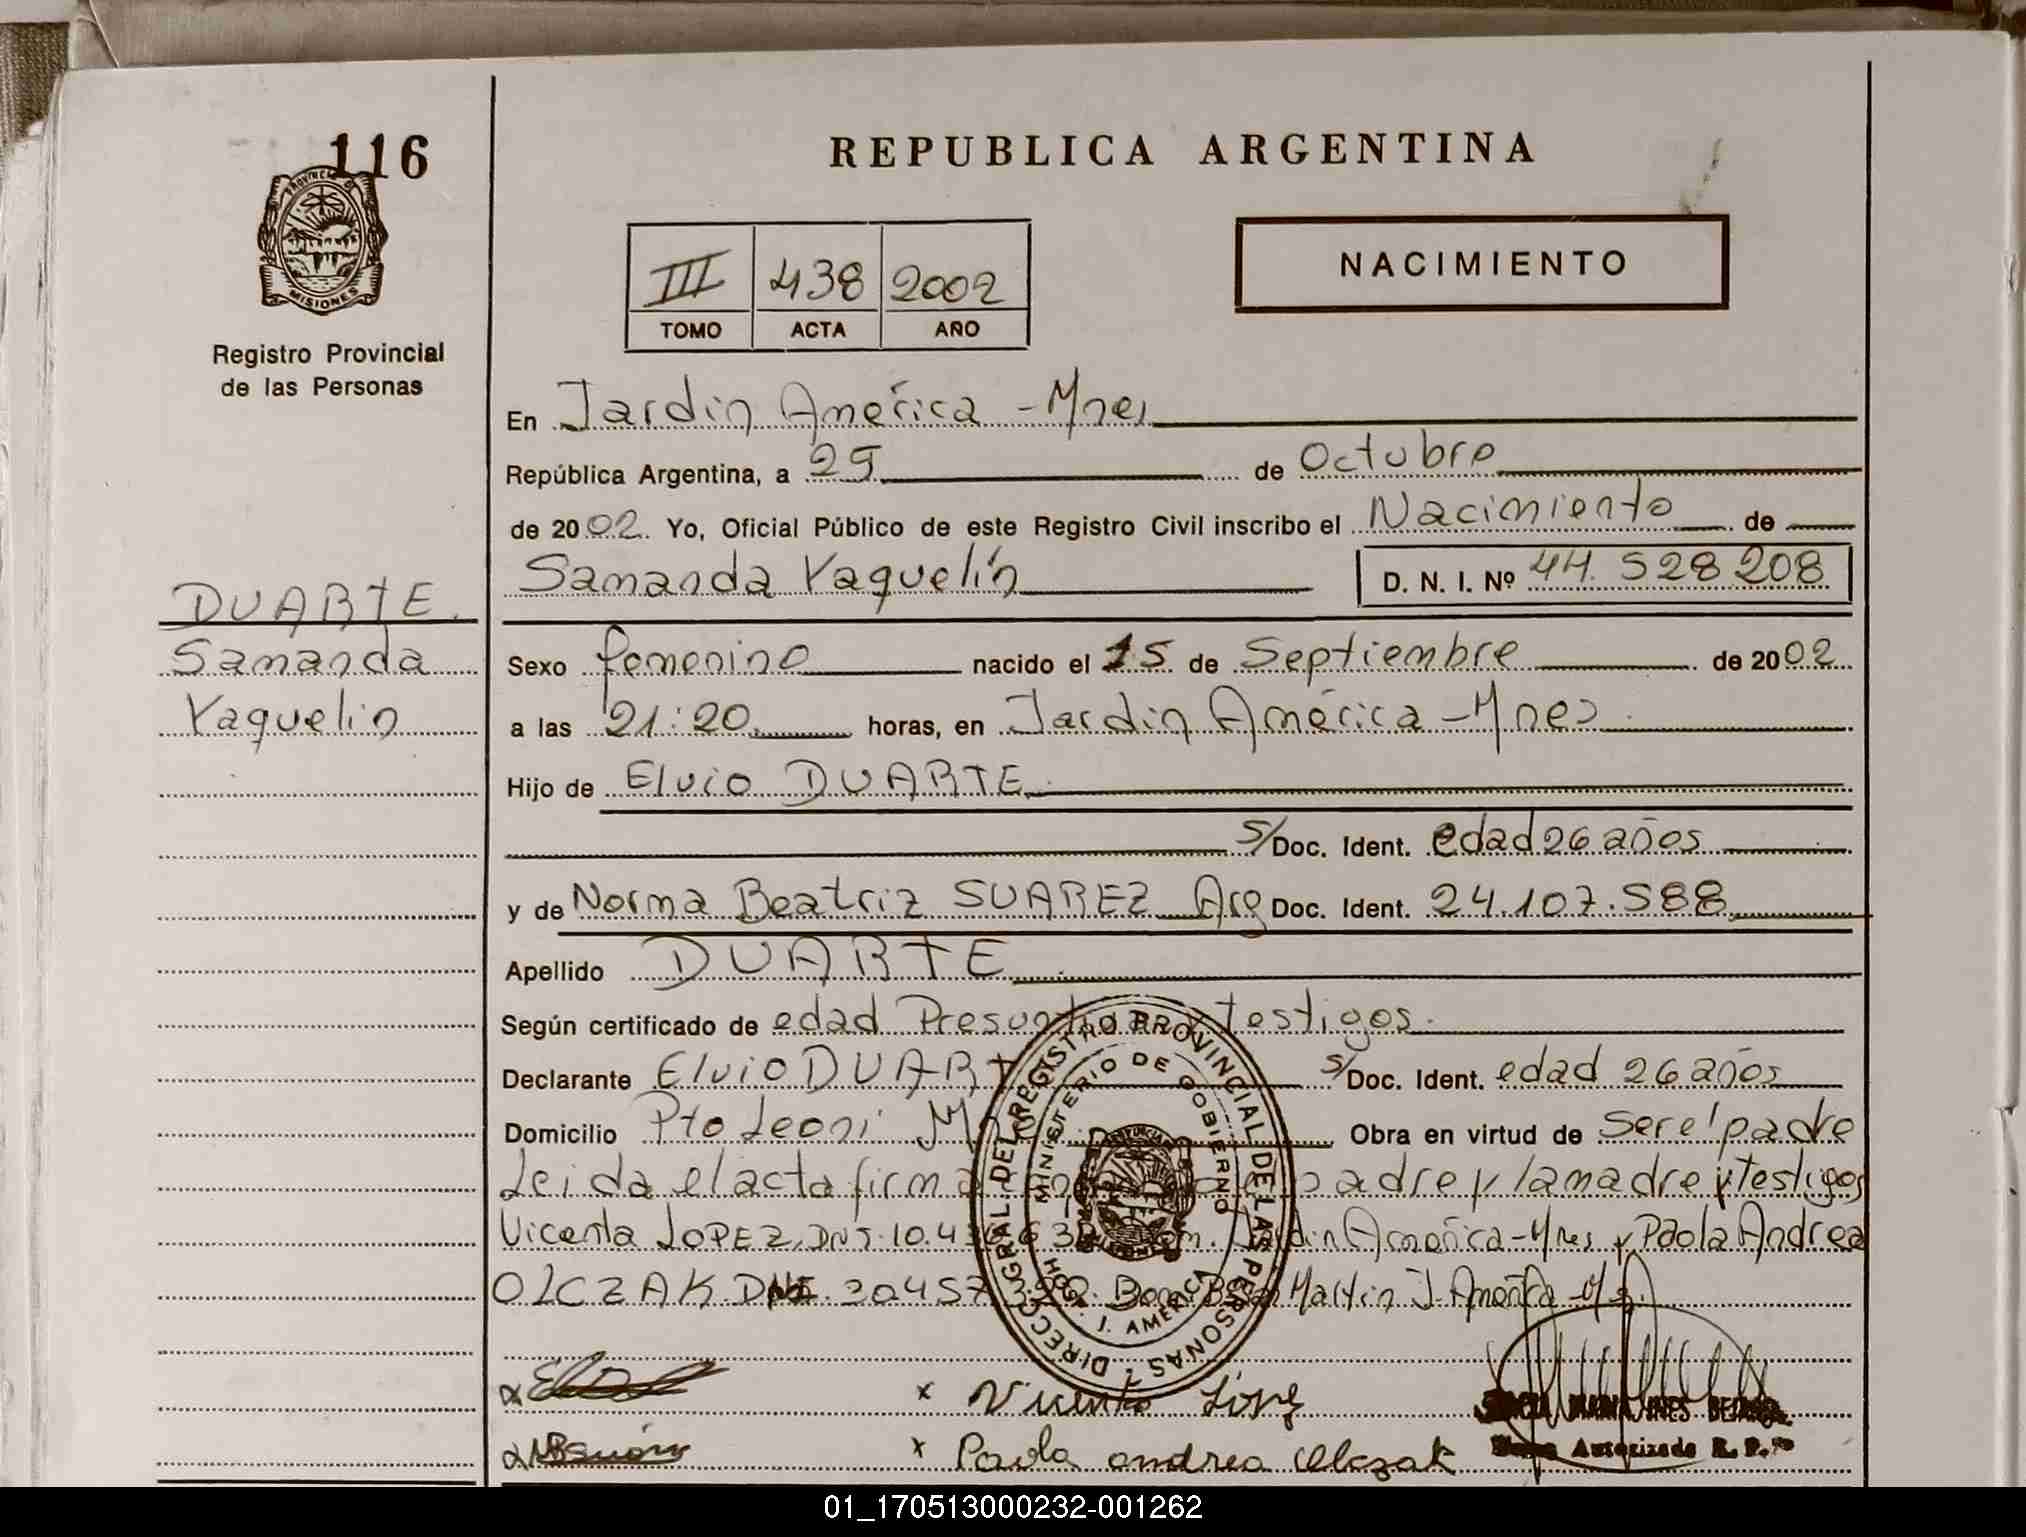 116
PROVINCIA DE
MISIONES
Registro Provincial
de las Personas
DUARTE.
Samanda
Yaquelin
REPUBLICA ARGENTINA
III 438 2002
TOMO ACTA AÑO
NACIMIENTO
En Jardin América - Mnes
República Argentina, a 29 de Octubre
de 2002. Yo, Oficial Público de este Registro Civil inscribo el Nacimiento de
Samanda Yaquelín D. N. I. Nº 44.528.208
Sexo femenino nacido el 15 de Septiembre de 2002
a las 21:20 horas, en Jardin América - Mnes
Hijo de Elvio DUARTE
s/Doc. Ident. edad 26 años
y de Norma Beatriz SUAREZ Arg Doc. Ident. 24.107.588
Apellido DUARTE
Según certificado de edad Presuntiva y testigos.
Declarante Elvio DUARTE s/Doc. Ident. edad 26 años
Domicilio Pto Leoni Obra en virtud de ser el padre
Leida el acta firma padre y la madre y testigos
Vicenta LOPEZ, DNI. 10.4 Jardin América - Mnes y Paola Andrea
OLCZAK DNI. Martin J. América
DIRECC. GRAL. DEL REGISTRO PROVINCIAL DE LAS PERSONAS
MINISTERIO DE GOBIERNO
MISIONES
J. AMERICA
x Paola andrea Olczak
Autorizada R. P.
01_170513000232-001262